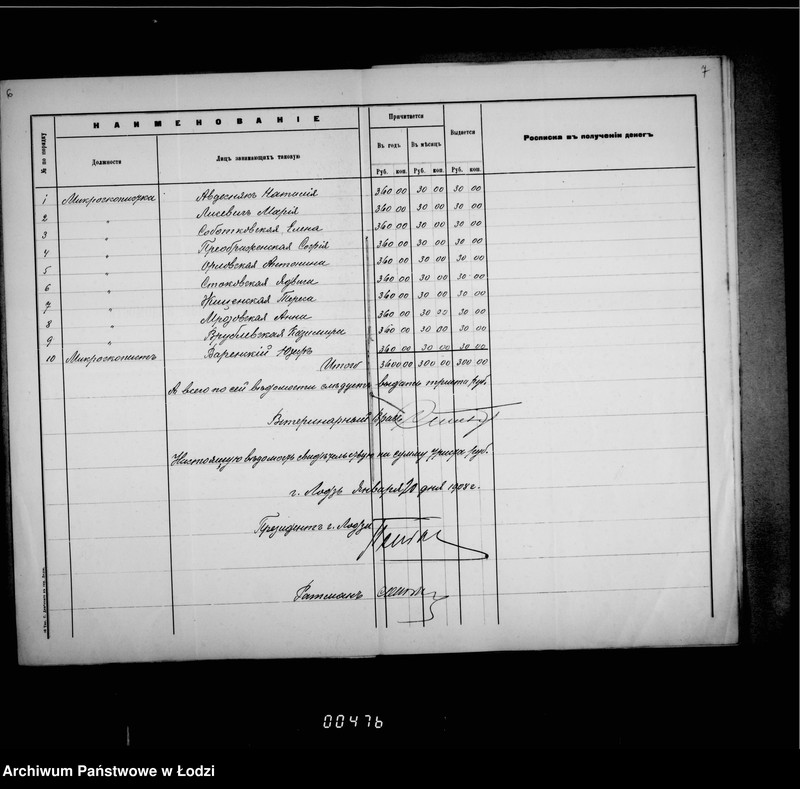 6
7
№ по порядку
НАИМЕНОВАНІЕ
Причитается
Выдается
Росписка въ полученіи денегъ
Должности
Лицъ занимающихъ таковую
Въ годъ
Въ мѣсяцъ
Руб. коп. Руб. коп. Руб. коп.
1 Микроскопистка Наталія 360 00 30 00 30 00
2 " Лисевичъ Марія 360 00 30 00 30 00
3 " Соботковская Елена 360 00 30 00 30 00
4 " Преображенская Софія 360 00 30 00 30 00
5 " Орловская Антонина 360 00 30 00 30 00
6 " Стоковская Ядвига 360 00 30 00 30 00
7 " 360 00 30 00 30 00
8 " Мрозовская Анна 360 00 30 00 30 00
9 " Врублевская Казимира 360 00 30 00 30 00
10 Микроскопистъ 360 00 30 00 30 00
Итого 3600 00 300 00 300 00
А всего по сей вѣдомости слѣдуетъ выдать триста руб.
Ветеринарный Врачъ
Настоящую вѣдомость свидѣтельствую на сумму триста руб.
г. Лодзь Января 20 дня 1908 г.
Президентъ г. Лодзи
Ратманъ
00476
Archiwum Państwowe w Łodzi